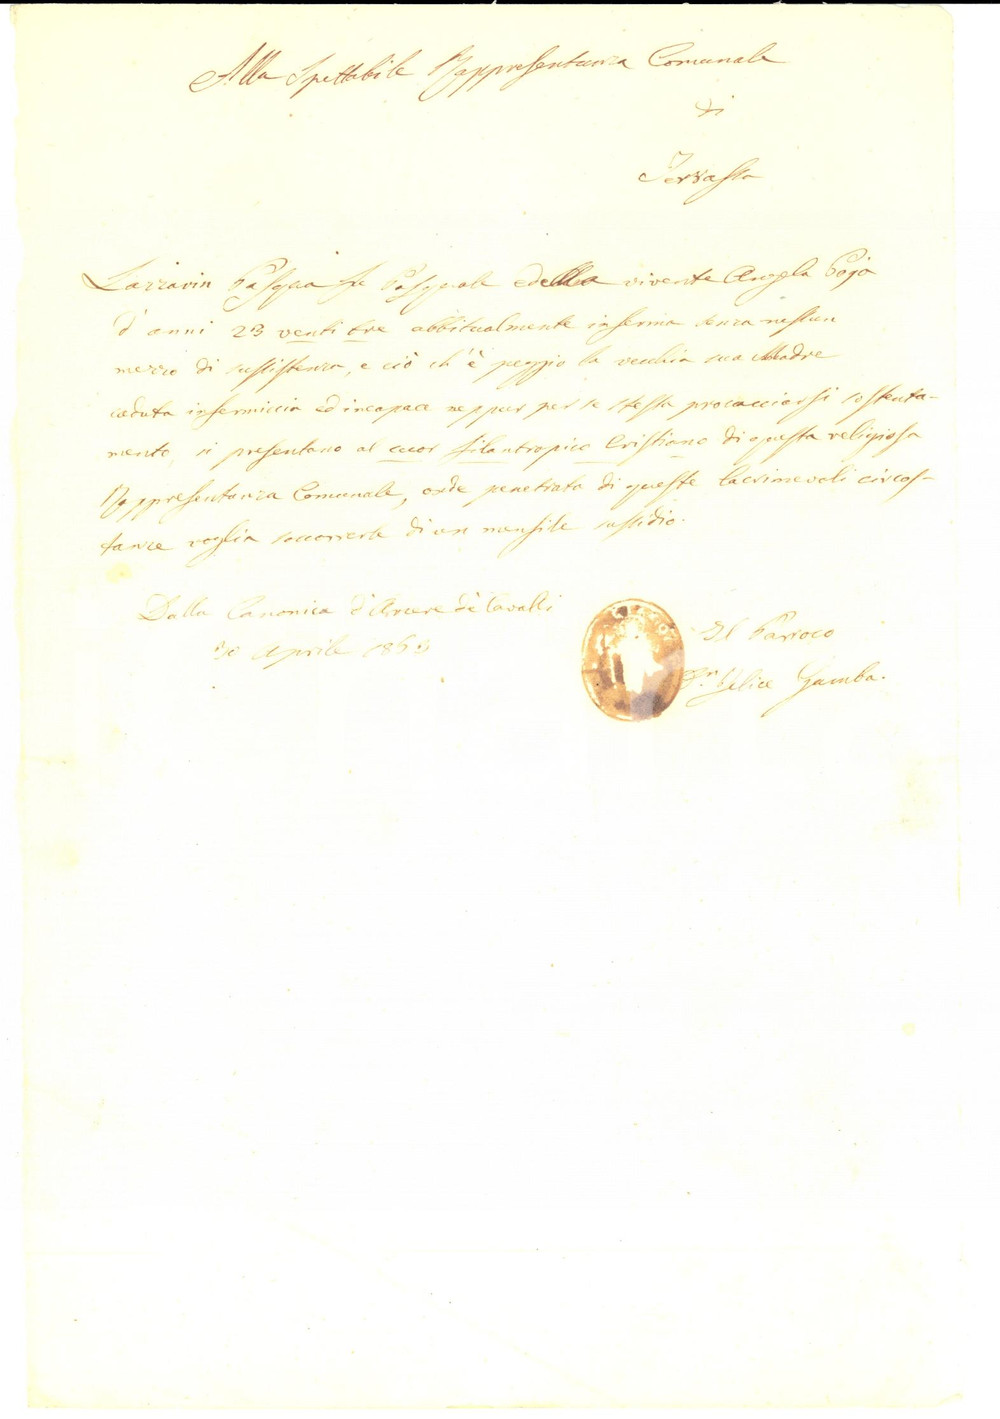 Alla Spettabile Rappresentanza Comunale
di
Terrassa
Lazzarin Pasqua fu Pasquale e della vivente Angela Pojo
d'anni 23 venti tre abbitualmente inferma senza nessun
mezzo di sussistenza, e ciò ch'è peggio la vecchia sua Madre
caduta infermiccia ed incapace neppur per se stessa procacciarsi sostenta-
mento, si presentano al cuor filantropico Cristiano di questa religiosa
Rappresentanza Comunale, onde penetrata di queste lacrimevoli circos-
tanze voglia soccorrerle di un mensile sussidio.
Dalla Canonica d'Arzere de Cavalli
30 Aprile 1853
Il Parroco
Dn Felice Gamba.